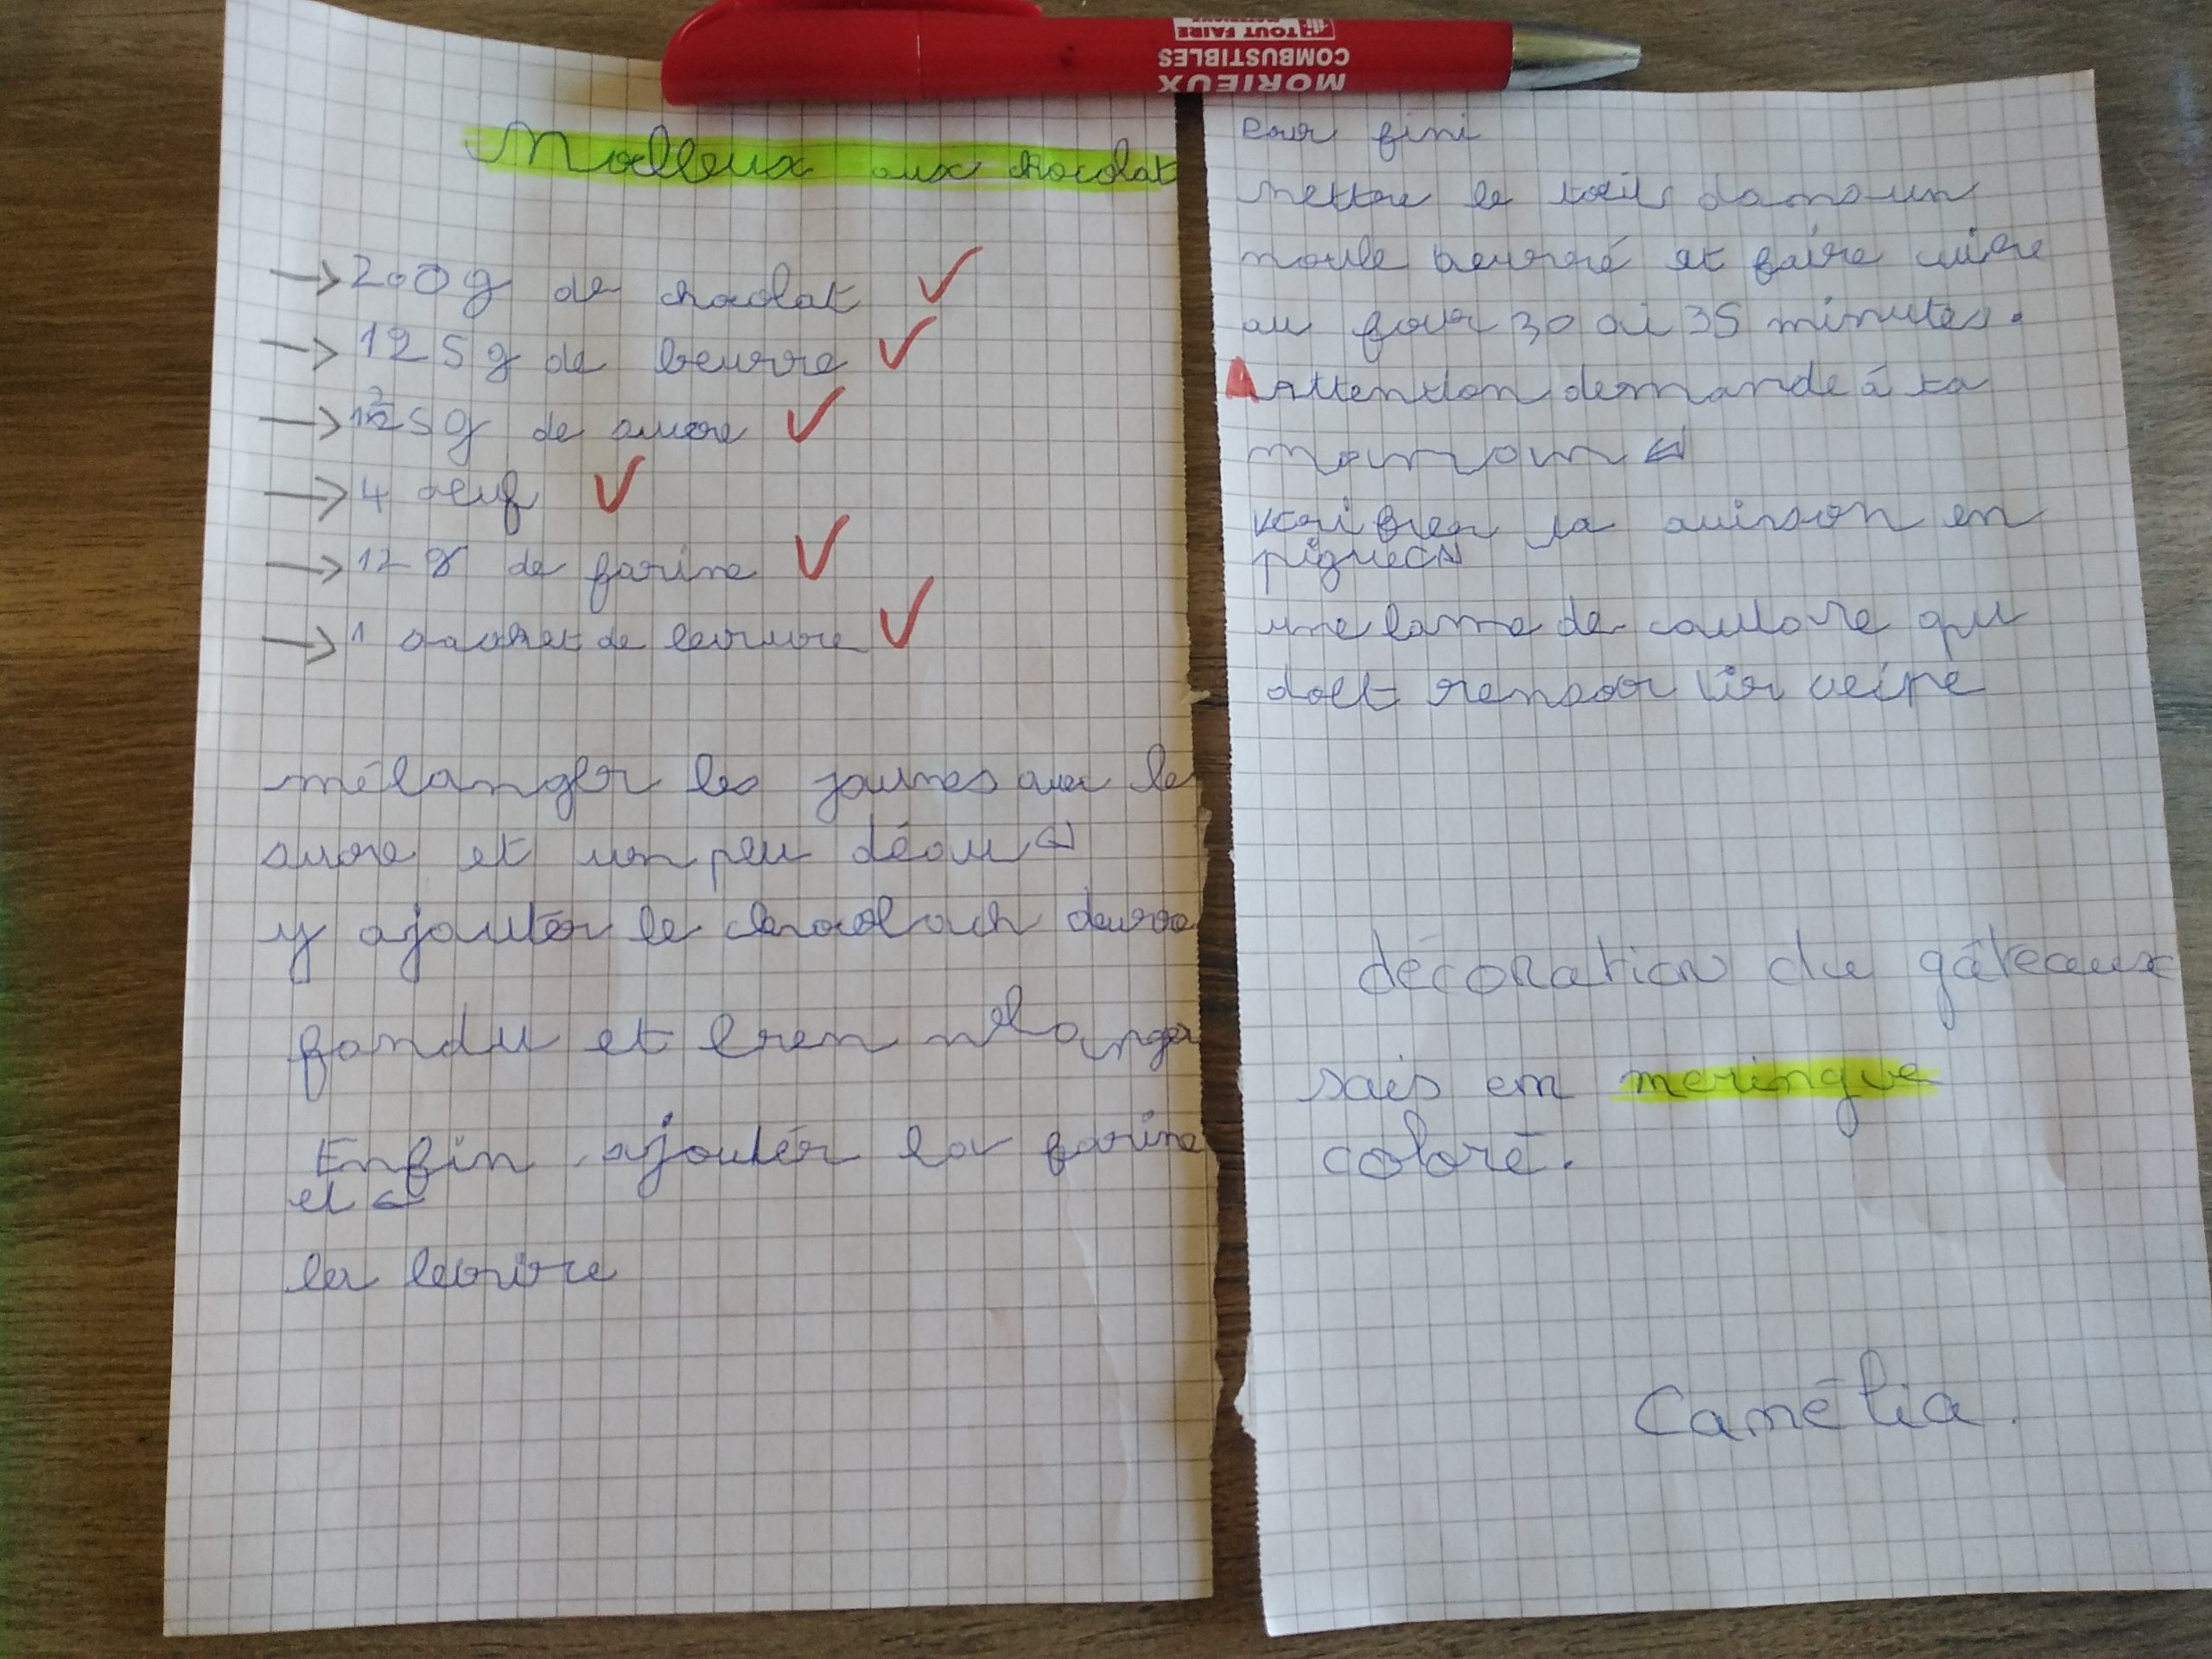 MORIEUX
COMBUSTIBLES
TOUT FAIRE
Moelleux aux chocolat
200g de chocolat
125g de beurre
125g de sucre
4 oeuf
12 g de farine
1 sachet de levure
mélanger les jaunes avec le
sucre et un peu déau
y ajouter le deurre
fondu et bien mélanger
Enfin ajoutér la farine
et
la levrire
Pour fini
mettre le dans un
moule beurré et faire cuire
au four 30 ai 35 minutes.
Attention demande à ta
maman
la cuisson en
une lame de qui
doit
décoration du gâteaux
sais en meringue
coloré.
Camélia.